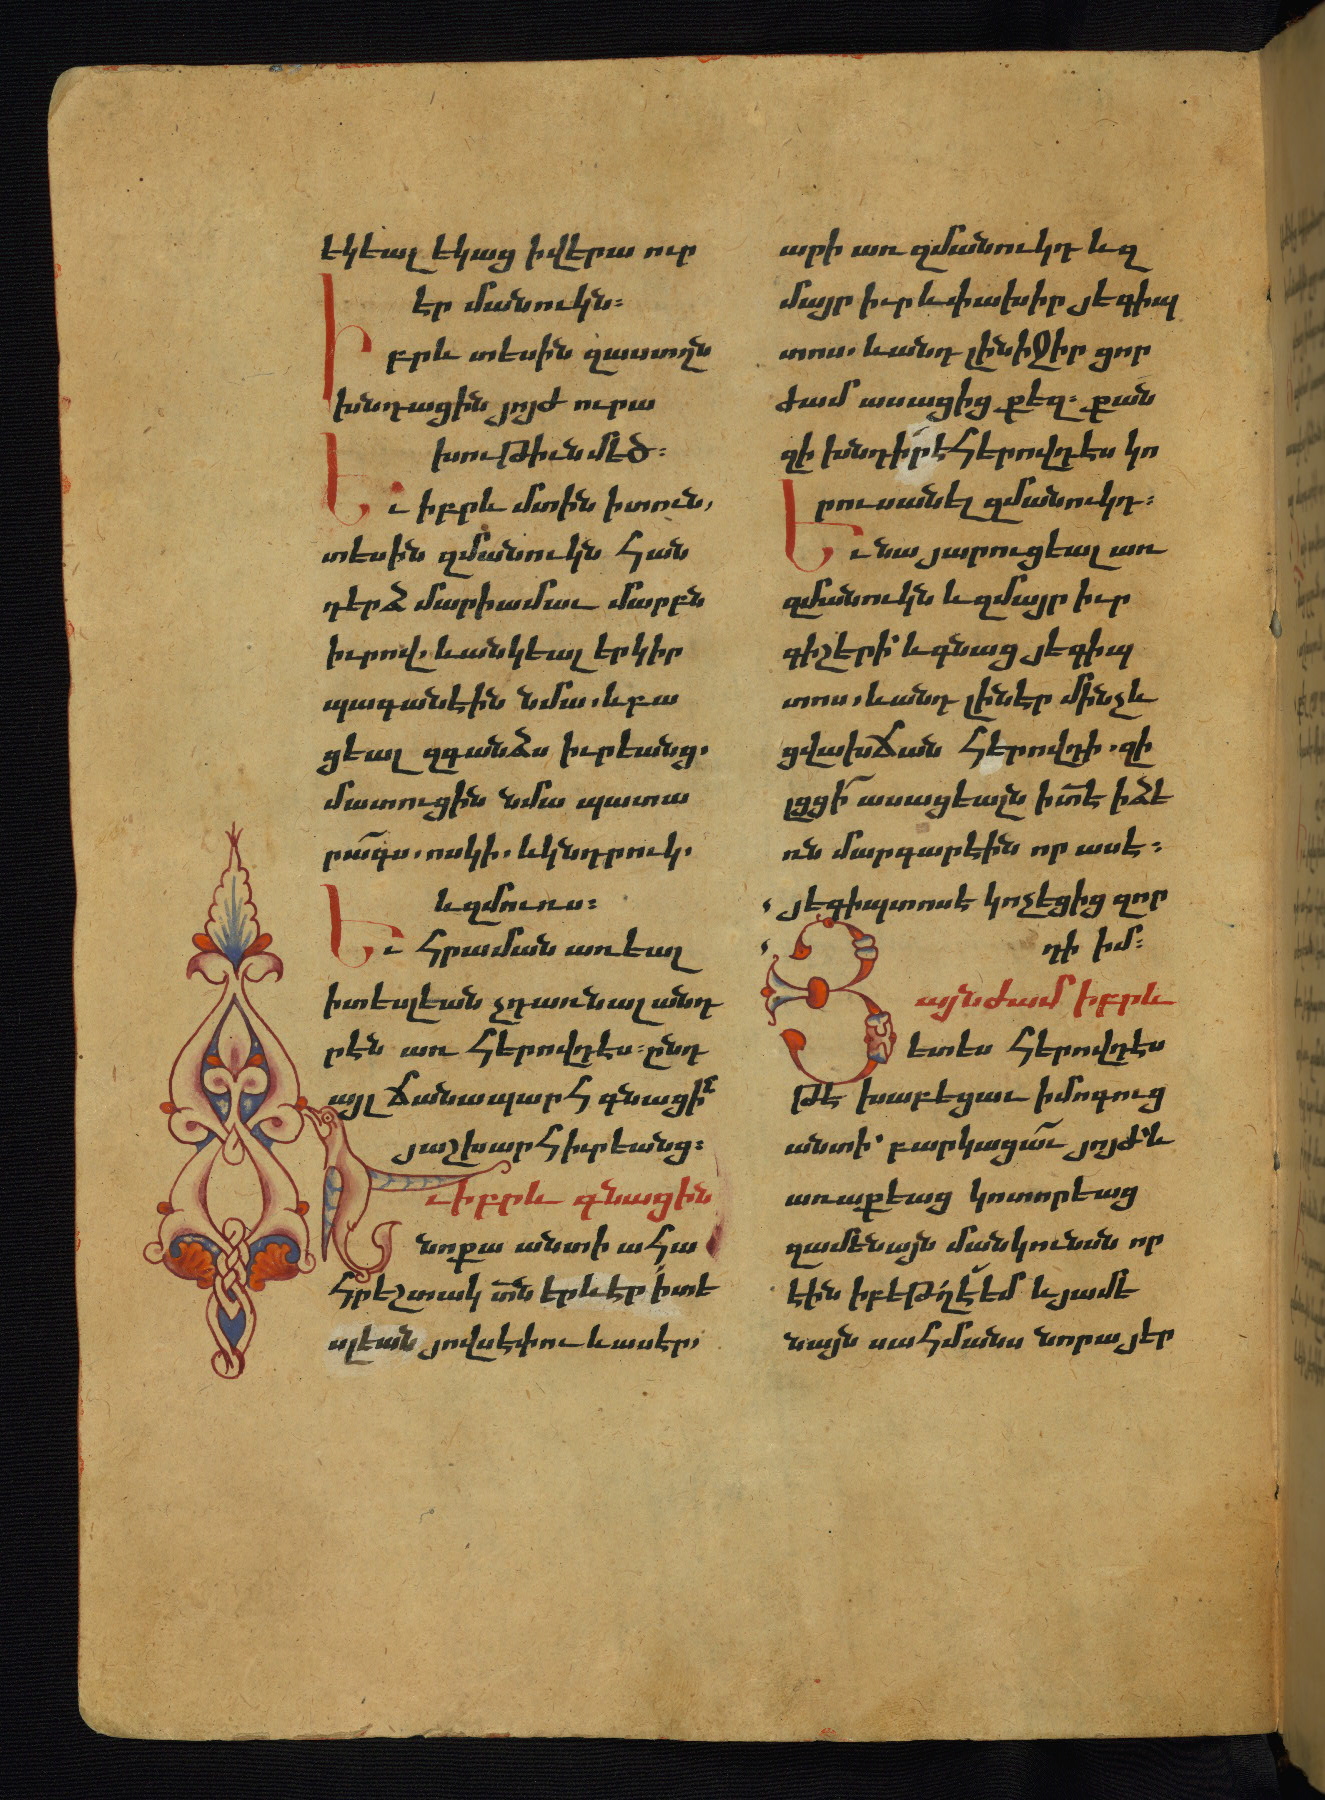 եկեալ եկաց ի վերա ուր
էր մանուկն։
Իբրև տեսին զաստղն
խնդացին յոյժ ուրա
խութիւն մեծ։
Եւ իբրև մտին ի տունն,
տեսին զմանուկն հան
դերձ մարիամաւ մարբն
իւրով. և անկեալ երկիր
պագանէին նմա. և բա
ցեալ զգանձս իւրեանց.
մատուցին նմա պատա
րա՟գս. ոսկի. և կնդրուկ.
և զմուռս։
Եւ հրաման առեալ
ի տեսլեան չդառնալ անդ
րէն առ հերովդէս։ ընդ
այլ ճանապարհ գնացին
յաշխարհ իւրեանց։
Եւ իբրև գնացին
նոքա անտի ահա
հրեշտակ տ՟ն երևէր ի տե
սլեան յովսեփու և ասէր.
արի առ զմանուկդ և զ
մայր իւր և փախիր յեգիպ
տոս. և անդ լինիջիր ցոր
ժամ ասացից քեզ։ քան
զի խնդիր է հերովդէս կո
րուսանել զմանուկդ։
Եւ նա յարուցեալ առ
զմանուկն և զմայր իւր
գիշերի՝ և գնաց յեգիպ
տոս. և անդ լիներ մինչև
ցվախճան հերովդի. զի
լցցի՟ ասացեալն ի տ՟է ի ձե
ռն մարգարէին որ ասէ։
յեգիպտոսէ կոչեցից զոր
դի իմ։
Յայնժամ իբրև
ետես հերովդէս
թէ խաբեցաւ ի մոգուց
անտի՝ բարկացա՟ւ յոյժ՝ և
առաքեաց կոտորեաց
զամենայն մանկունսն որ
էին ի բեթղէէմ և յամե
նայն սահմանս նորա յեր